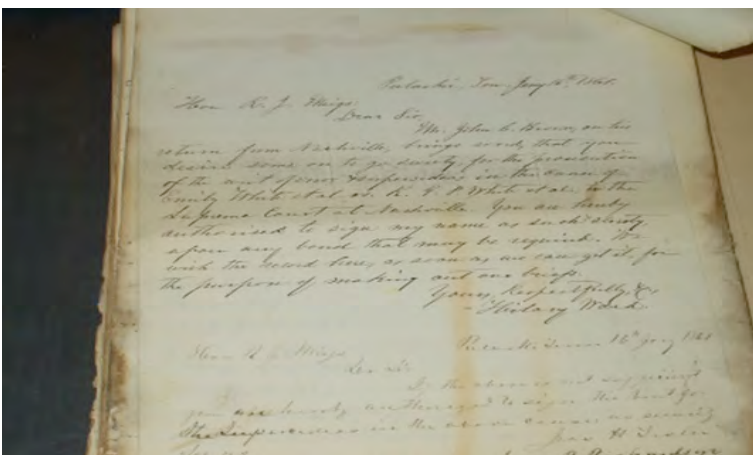 Pulaski, Ten, Jany 16th 1861.
Hon R. J. Meigs,
Dear Sir,
Mr. John C. Brown, on his
return from Nashville, brings word, that you
desire some one to go surety, for the prosecution
of the writ of error & supersedeas in the case of
Emily White et al. vs. R. F. P. White et al. in the
Supreme Court at Nashville. You are hereby
authorised to sign my name as such surety,
upon any bond that may be required. We
wish the record here, as soon as we can get it, for
the purpose of making out our briefs.
Yours, Respectfully, &c,
Hilary Ward
Pulaski Tenn 16th Jany 1861
Hon R J Meigs
Dear Sir
If the above is not sufficient
you are hereby authorized to sign the bond for
the Supersedeas in the above cause as security